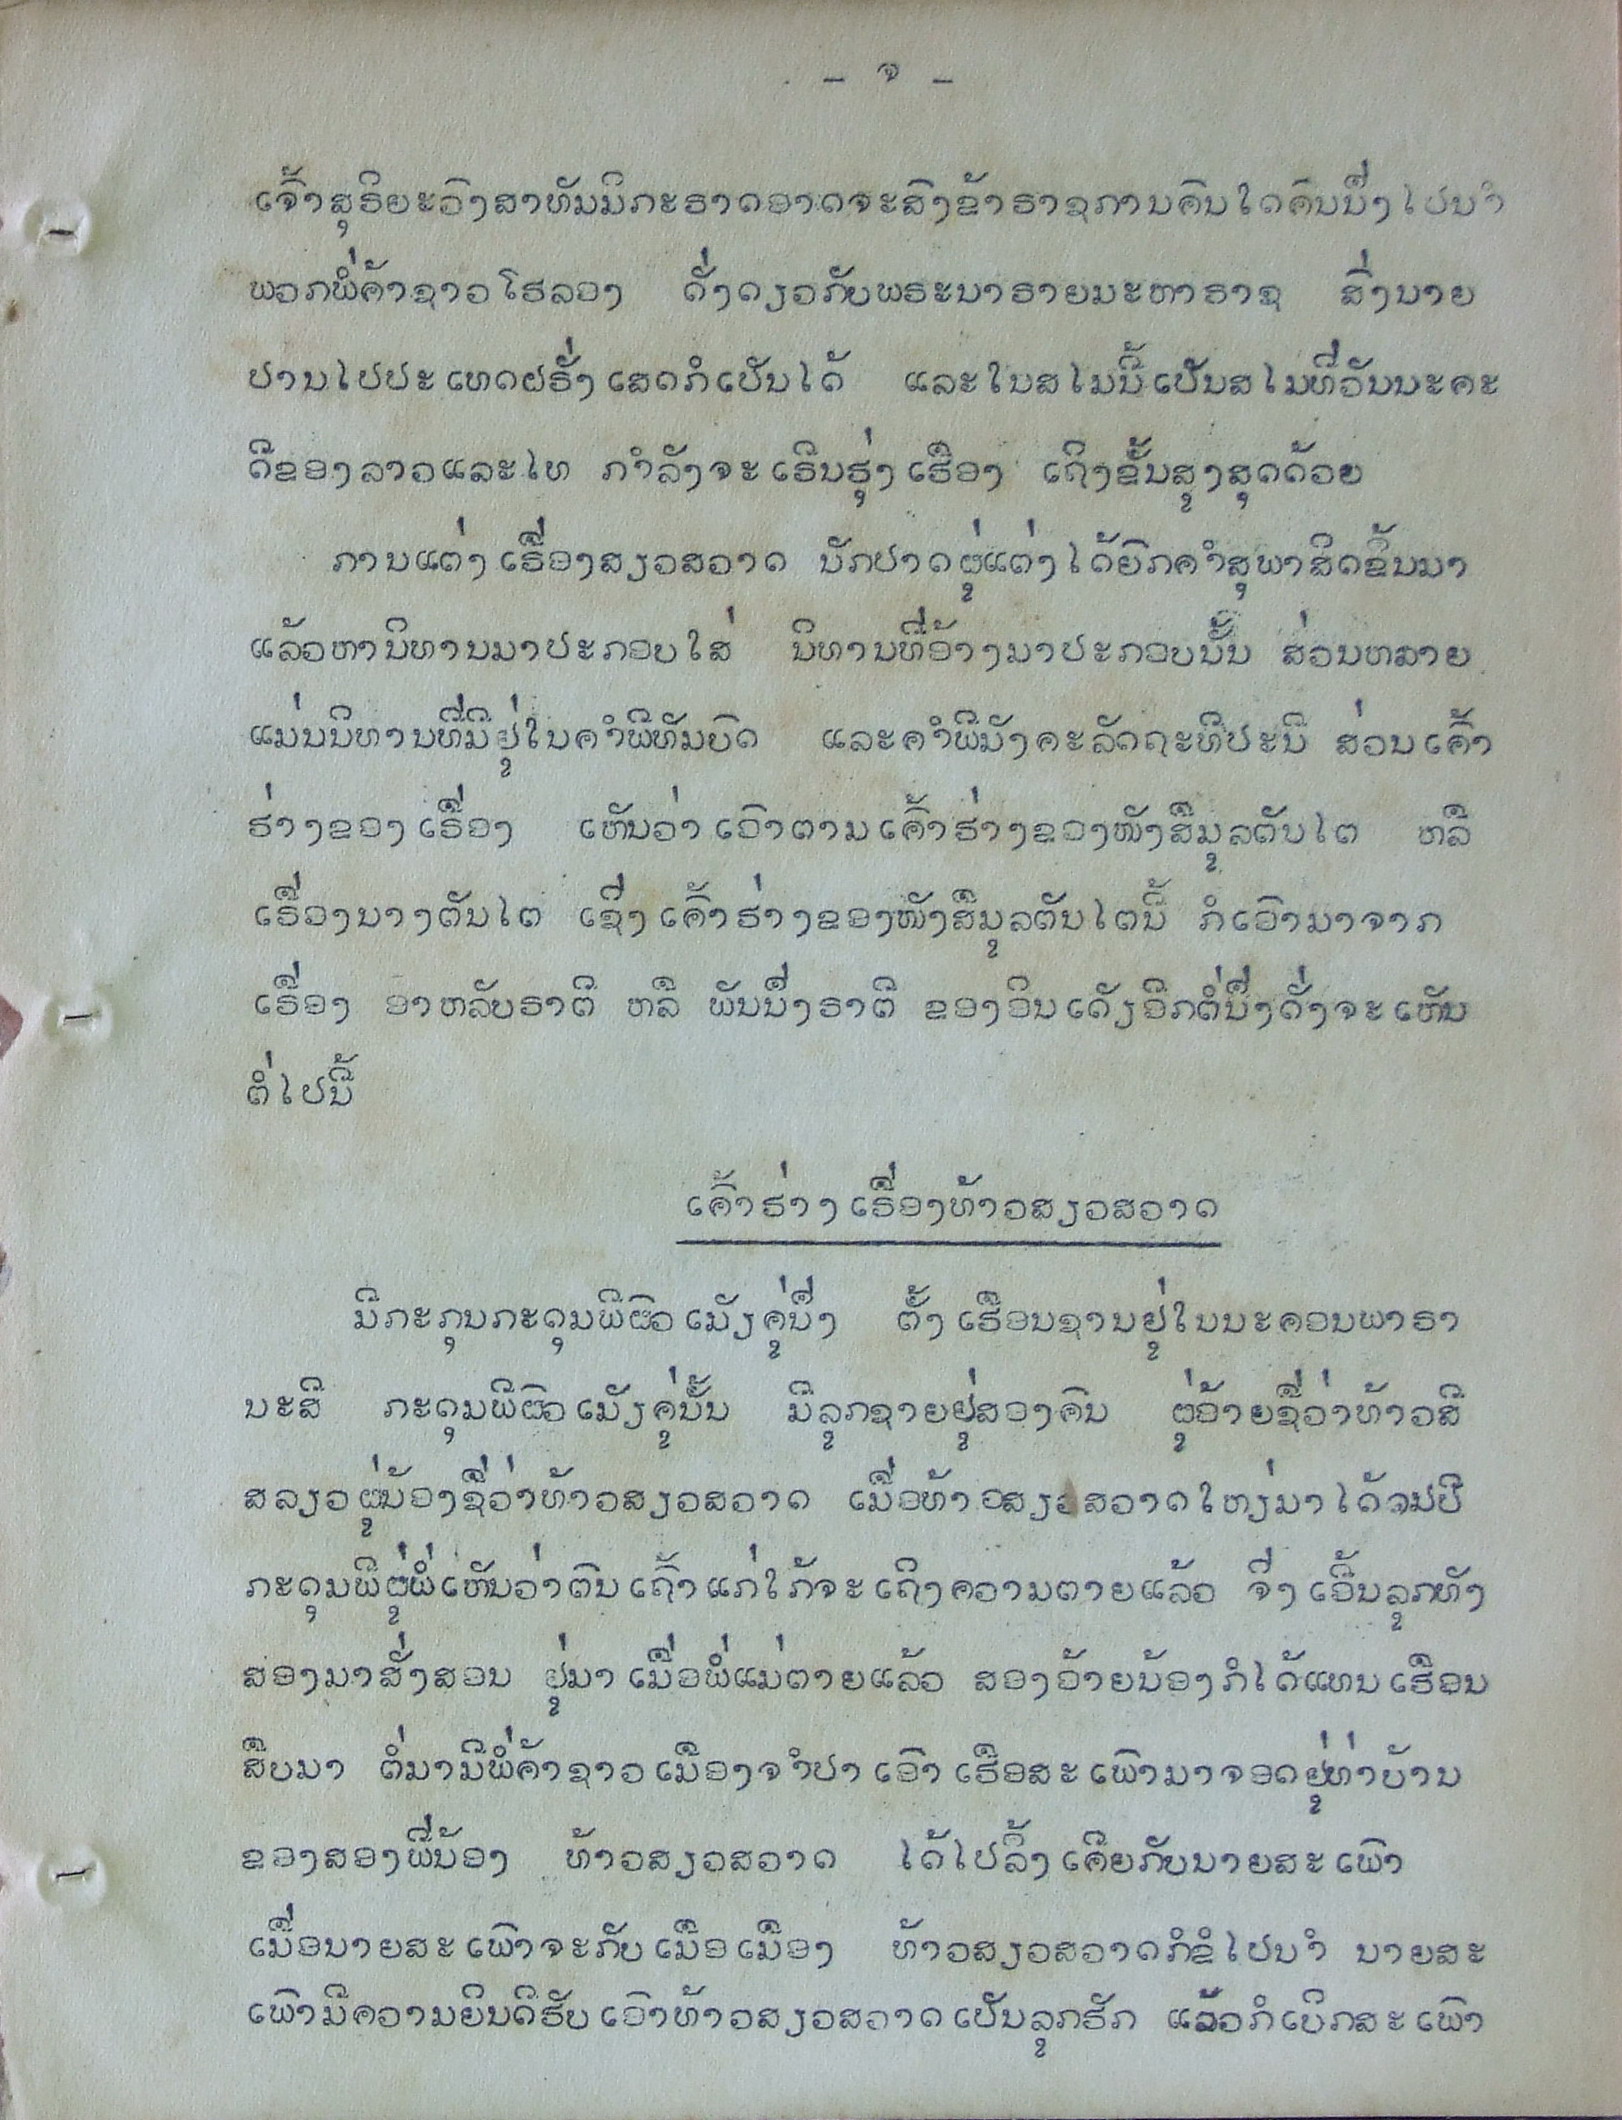 - ຈ -
ເຈົ້າສຸຣິຍະວົງສາທັມມິກະຣາດອາດຈະສົ່ງຂ້າຣາຊການຄົນໃດຄົນນຶ່ງໄປນຳ
ພວກພໍ່ຄ້າຊາວໂຮລອງ ດັ່ງດຽວກັບພຣະນາຣາຍມະຫາຣາຊ ສົ່ງນາຍ
ປານໄປປະເທດຝຣັ່ງເສດກໍເປັນໄດ້ ແລະໃນສໄມນີ້ເປັນສໄມທີ່ວັນນະຄະ
ດີຂອງລາວແລະໄທ ກຳລັງຈະເຣີນຮຸ່ງເຮືອງ ເຖິງຂັ້ນສູງສຸດດ້ວຍ
ການແຕ່ງເຣື່ອງສຽວສວາດ ນັກປາດຜູ່ແຕ່ງໄດ້ຍົກຄຳສຸພາສິດຂຶ້ນມາ
ແລ້ວຫານິທານມາປະກອບໃສ່ ນິທານທີ່ອ້າງມາປະກອບນັ້ນ ສ່ວນຫລາຍ
ແມ່ນນິທານທີ່ມີຢູ່ໃນຄຳພີທັມບົດ ແລະຄຳພີມັງຄະລັດຖະທີປະນີ ສ່ວນເຄົ້າ
ຮ່າງຂອງເຣື່ອງ ເຫັນວ່າເອົາຕາມເຄົ້າຮ່າງຂອງໜັງສືມູລຕັນໄຕ ຫລື
ເຣື່ອງນາງຕັນໄຕ ເຊິ່ງເຄົ້າຮ່າງຂອງໜັງສືມູລຕັນໄຕນີ້ ກໍເອົາມາຈາກ
ເຣື່ອງ ອາຫລັບຣາຕີ ຫລື ພັນນຶ່ງຣາຕີ ຂອງອິນເດັຽອີກຕໍ່ນຶ່ງດັ່ງຈະເຫັນ
ຕໍ່ໄປນີ້
ເຄົ້າຮ່າງເຣື່ອງທ້າວສຽວສວາດ
ມີກະກຸນກະດຸມພີຜົວເມັຽຄູ່ນຶ່ງ ຕັ້ງເຮືອນຊານຢູ່ໃນນະຄອນພາຣາ
ນະສີ ກະດຸມພີຜົວເມັຽຄູ່ນັ້ນ ມີລູກຊາຍຢູ່ສອງຄົນ ຜູ່ອ້າຍຊື່ວ່າທ້າວສີ
ສລຽວ ຜູ່ນ້ອງຊື່ວ່າທ້າວສຽວສວາດ ເມື່ອທ້າວສຽວສວາດໃຫຽ່ມາໄດ້ ປີ
ກະດຸມພີຜູ່ພໍ່ເຫັນວ່າຕົນເຖົ້າແກ່ໃກ້ຈະເຖິງຄວາມຕາຍແລ້ວ ຈຶ່ງເອີ້ນລູກທັງ
ສອງມາສັ່ງສອນ ຢູ່ມາເມື່ອພໍ່ແມ່ຕາຍແລ້ວ ສອງອ້າຍນ້ອງກໍໄດ້ແທນເຮືອນ
ສືບມາ ຕໍ່ມາມີພໍ່ຄ້າຊາວເມືອງຈຳປາ ເອົາເຮືອສະເພົາມາຈອດຢູ່ທ່າບ້ານ
ຂອງສອງພີ່ນ້ອງ ທ້າວສຽວສວາດ ໄດ້ໄປລິ້ງເຄີຍກັບນາຍສະເພົາ
ເມື່ອນາຍສະເພົາຈະກັບເມືອເມືອງ ທ້າວສຽວສວາດກໍຂໍໄປນຳ ນາຍສະ
ເພົາມີຄວາມຍິນດີຮັບເອົາທ້າວສຽວສວາດເປັນລູກຮັກ ແລ້ວກໍເບິກສະເພົາ